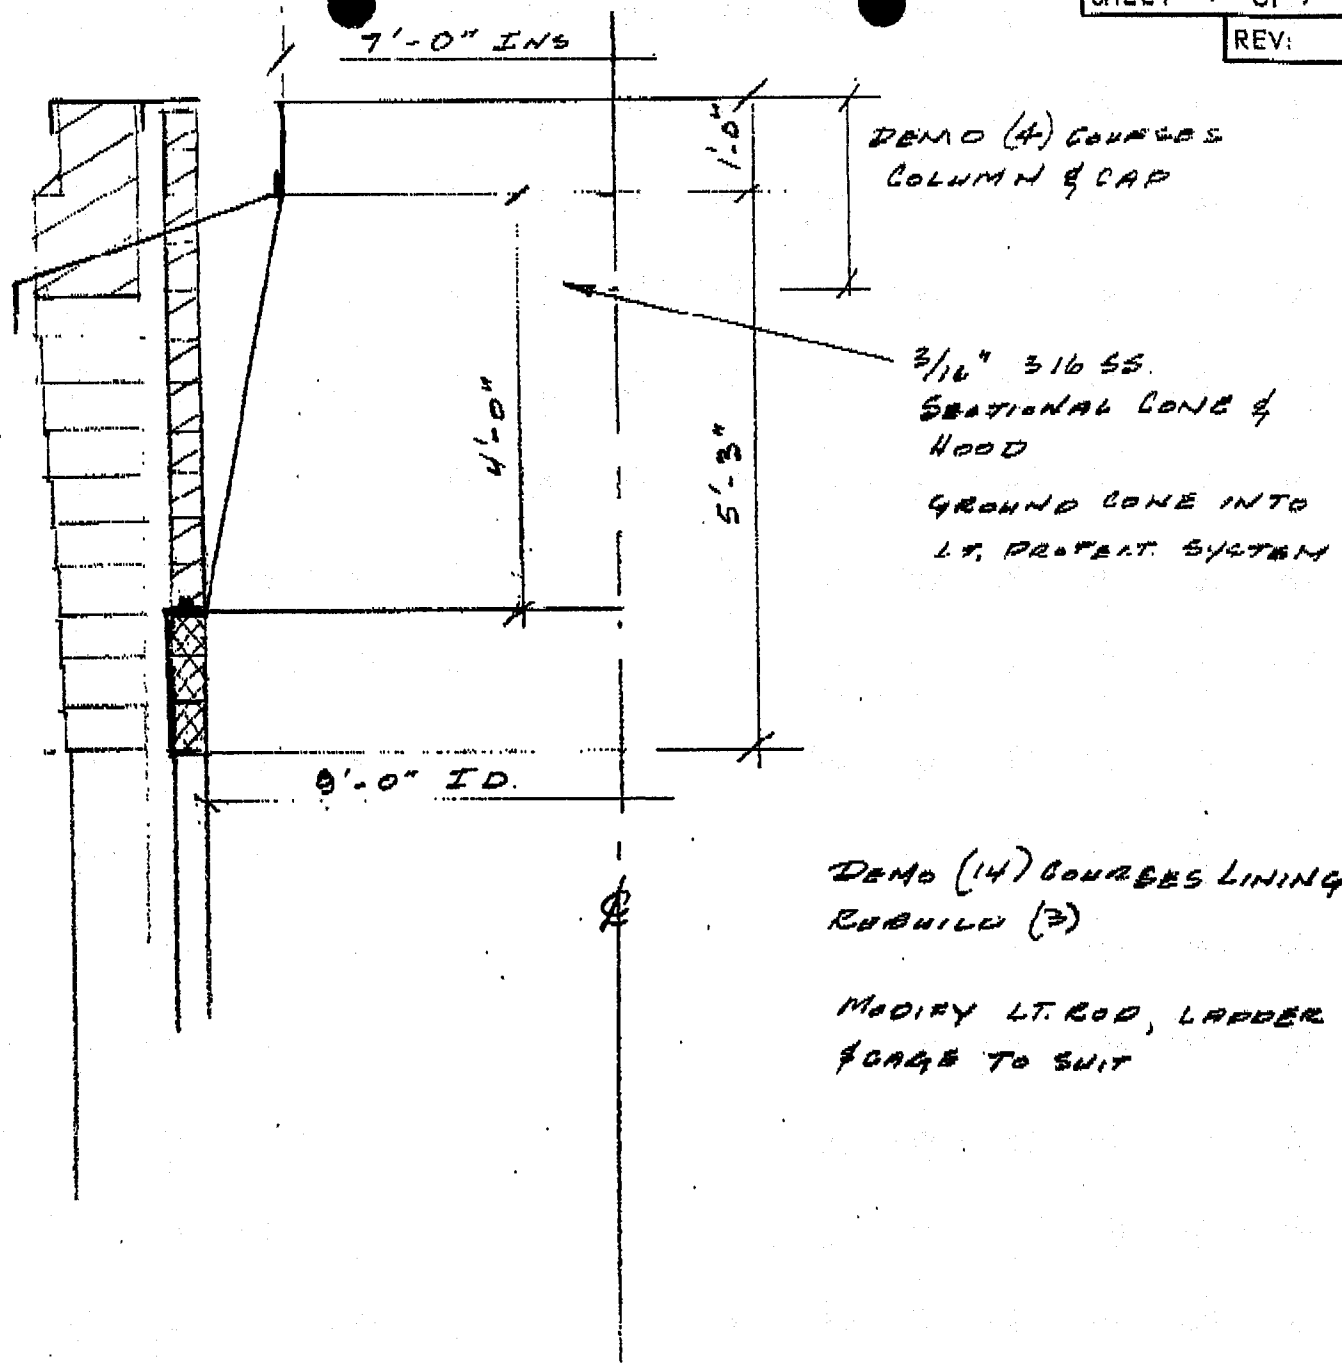 SHEET OF
REV:
7'-0" INS
1'-0"
DEMO (4) COURSES
COLUMN & CAP
3/16" 316 SS.
SECTIONAL CONE &
HOOD
GROUND CONE INTO
LT. PROTECT. SYSTEM
4'-0"
5'-3"
9'-0" ID.
DEMO (14) COURSES LINING
REBUILD (3)
MODIFY LT. ROD, LADDER
& CAGE TO SUIT